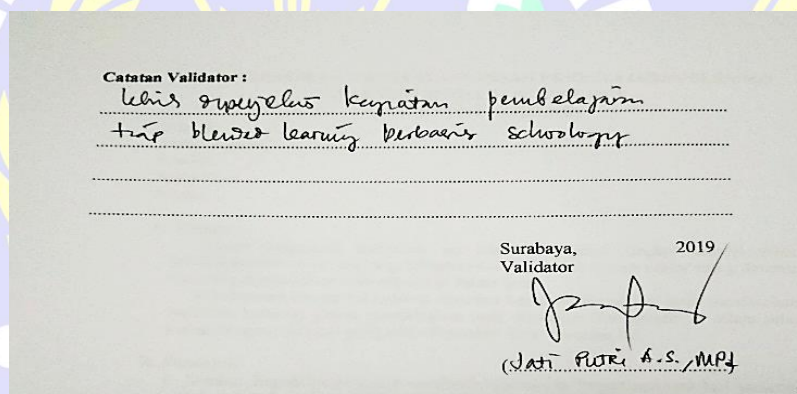 Catatan Validator :
lebih diperjelas kegiatan pembelajaran
tiap blended learning berbasis schoology
Surabaya, 2019
Validator
(Jati Putri A.S., MPd